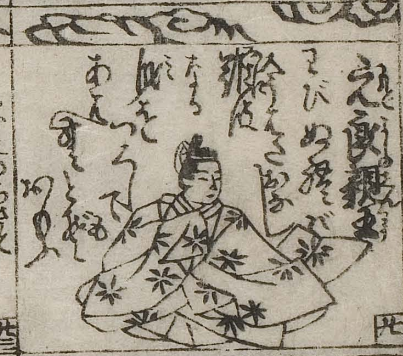 元良親王
わびぬれば
今はたおなじ
難波
なる
みを
つくしても
あはんとぞ
おもふ
廿